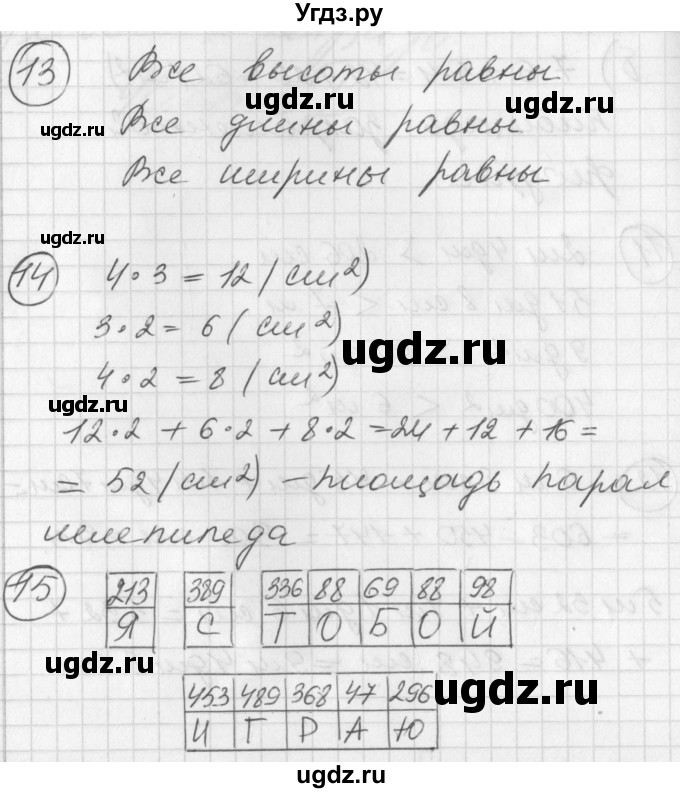 Угдз.ру
13 Все высоты равны
ugdz.ru ugdz.ru
Все длины равны
ugdz.ru ugdz.ru
Все ширины равны
ugdz.ru
14 4 · 3 = 12 (см²)
3 · 2 = 6 (см²)
ugdz.ru
4 · 2 = 8 (см²)
ugdz.ru
12 · 2 + 6 · 2 + 8 · 2 = 24 + 12 + 16 =
= 52 (см²) – площадь парал
ugdz.ru ugdz.ru
лелепипеда
15 213 389 336 88 69 88 98
Я С Т О Б О Й
ugdz.ru ugdz.ru
453 489 368 47 296
И Г Р А Ю
ugdz.ru
ugdz.ru